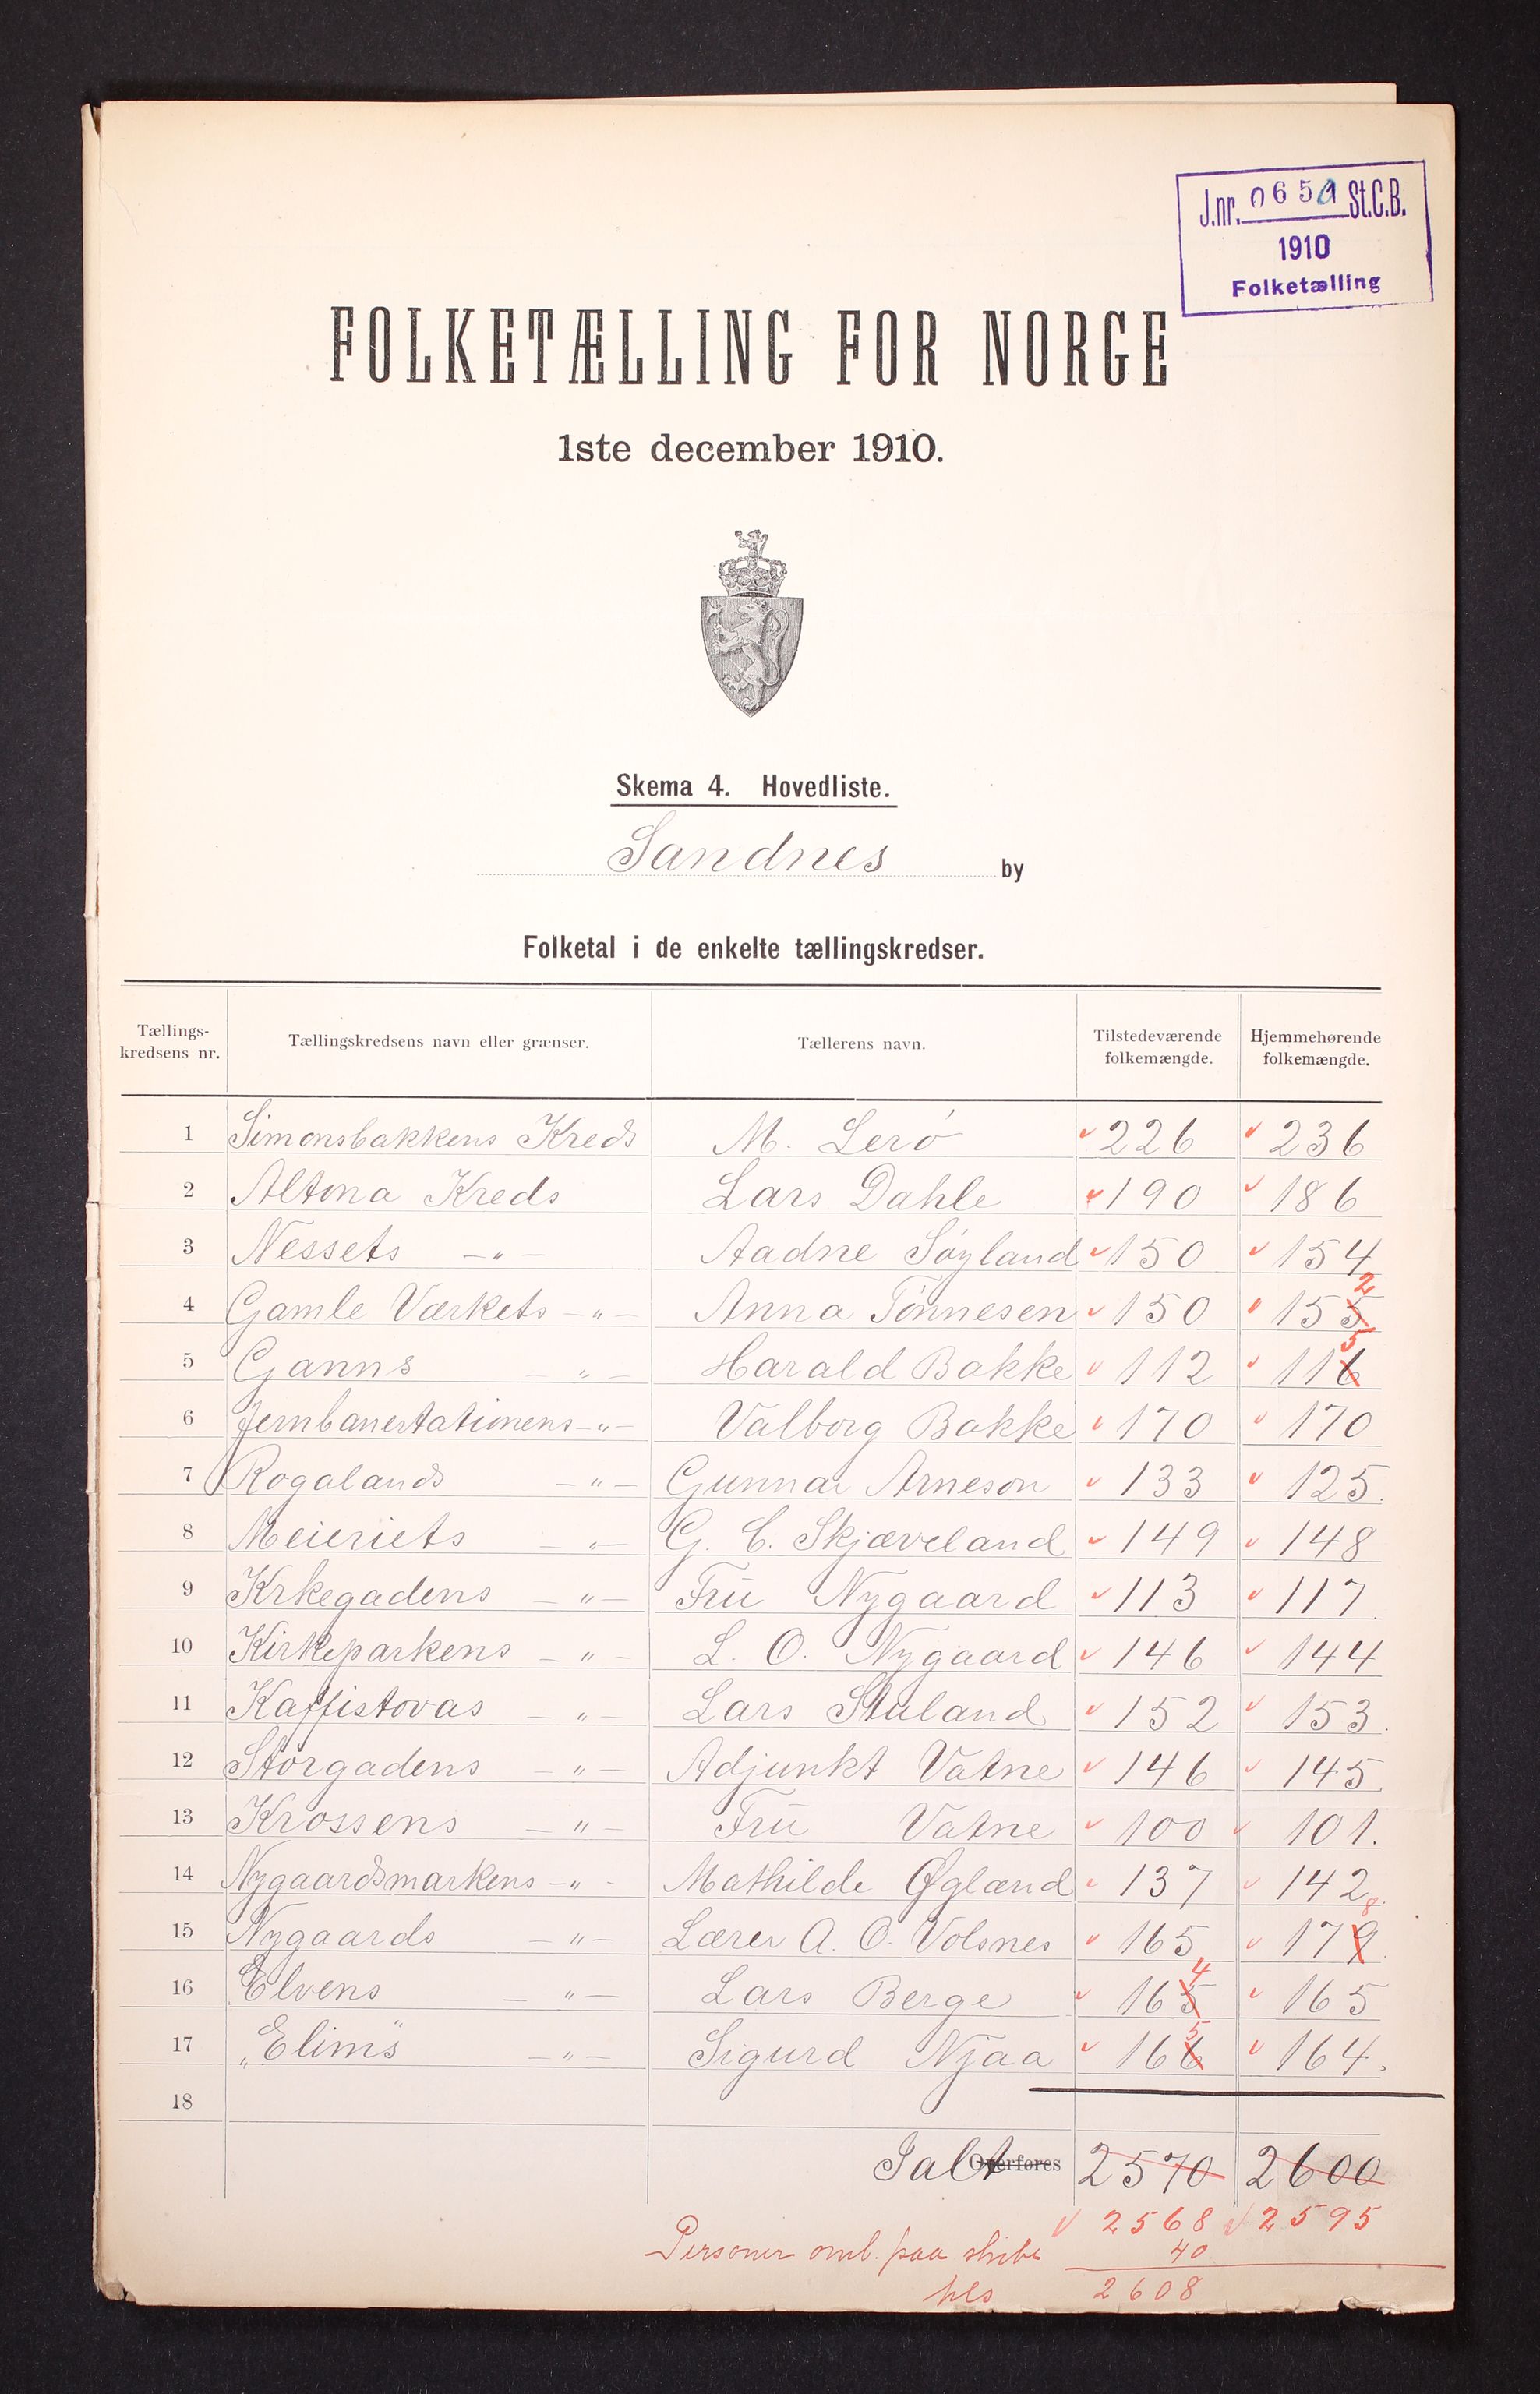 J.nr. 0650 St.C.B.
1910
Folketælling
FOLKETÆLLING FOR NORGE
1ste december 1910.
Skema 4. Hovedliste.
Sandnes by
Folketal i de enkelte tællingskredser.
Tællings-kredsens nr. Tællingskredsens navn eller grænser. Tællerens navn. Tilstedeværende folkemængde. Hjemmehørende folkemængde.
1 Simonsbakkens Kreds M. Lerö 226 236
2 Altona Kreds Lars Dahle 190 186
3 Nessets -"- Aadne Söyland 150 154
4 Gamle Værkets -"- Anna Tönnesen 150 155 2
5 Ganns -"- Harald Bakke 112 116 5
6 Jernbanestationens -"- Valborg Bakke 170 170
7 Rogalands -"- Gunnar Arneson 133 125.
8 Meieriets -"- G. C. Skjæveland 149 148
9 Krkegadens -"- Fru Nygaard 113 117.
10 Kirkeparkens -"- L. O. Nygaard 146 144
11 Kaffistovas -"- Lars Staland 152 153.
12 Storgadens -"- Adjunkt Vatne 146 145.
13 Krossens -"- Fru Vatne 100 101.
14 Nygaardsmarkens -"- Mathilde Øglænd 137 142.
15 Nygaards -"- Lærer A. O. Volsnes 165 179. 8
16 Elvens -"- Lars Berge 165 4 165
17 "Elim"s -"- Sigurd Njaa 166 5 164.
18
Ialt Overføres 2570 2600
2568 2595
Personer omb. paa skibe 40
2608